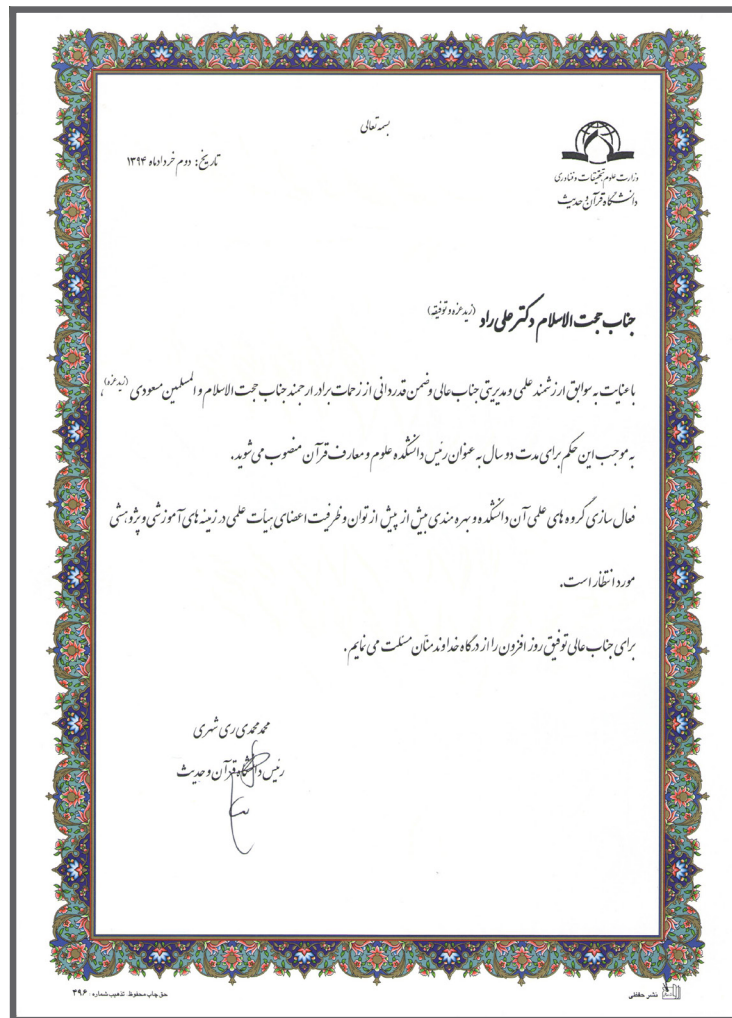 بسمه تعالی
تاریخ: دوم خردادماه ۱۳۹۴
وزارت علوم تحقیقات و فناوری
دانشگاه قرآن و حدیث
جناب حجت الاسلام دکتر علی راد (زید عزه و توفیقه)
با عنایت به سوابق ارزشمند علمی و مدیریتی جناب عالی و ضمن قدردانی از زحمات برادر ارجمند جناب حجت الاسلام و المسلمین مسعودی (زید عزه)،
به موجب این حکم برای مدت دو سال به عنوان رئیس دانشکده علوم و معارف قرآن منصوب می شوید.
فعال سازی گروه های علمی آن دانشکده و بهره مندی بیش از پیش از توان و ظرفیت اعضای هیأت علمی در زمینه های آموزشی و پژوهشی
مورد انتظار است.
برای جناب عالی توفیق روز افزون را از درگاه خداوند منّان مسئلت می نمایم.
محمد محمدی ری شهری
رئیس دانشگاه قرآن و حدیث
نشر حافظی
حق چاپ محفوظ. تذهیب شماره ۴۹۶